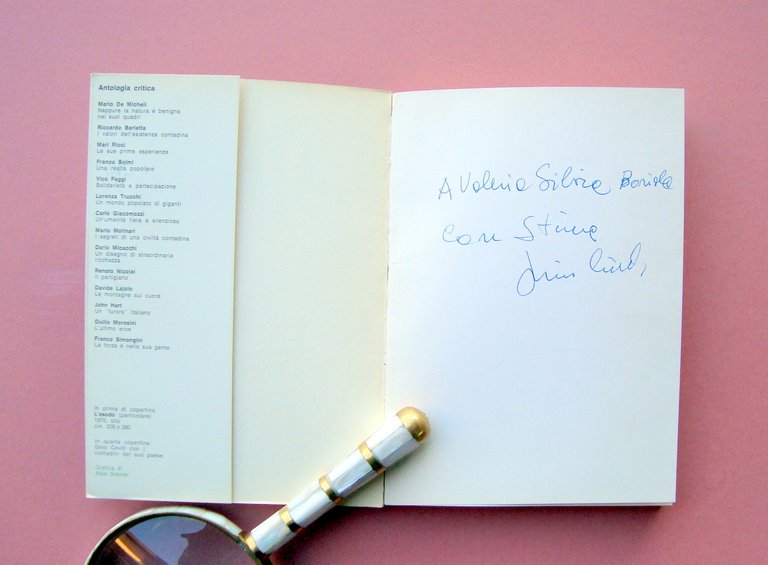 Antologia critica
Mario De Micheli
Neppure la natura è benigna
nei suoi quadri
Riccardo Barletta
I valori dell'esistenza contadina
Mari Ricci
Le sue prime esperienze
Franco Solmi
Una realtà popolare
Vico Faggi
Solidarietà e partecipazione
Lorenza Trucchi
Un mondo popolato di giganti
Carlo Giacomozzi
Un'umanità fiera e silenziosa
Mario Molinari
I segreti di una civiltà contadina
Dario Micacchi
Un disegno di straordinaria
ricchezza
Renato Nicolai
Il partigiano
Davide Lajolo
Le montagne sul cuore
John Hart
Un "furore" italiano
Duilio Morosini
L'ultimo eroe
Franco Simongini
La forza è nella sua gente
In prima di copertina:
L'esodo (particolare)
1970, olio
cm. 200 x 380
In quarta copertina:
Gino Covili con i
contadini del suo paese
Grafica di
Albe Steiner
A Valeria Silvia
con stima